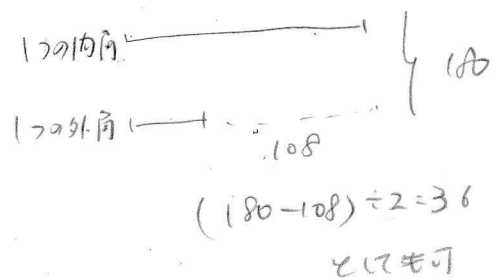 1つの内角
180
1つの外角
108
(180-108)÷2=36
としても可